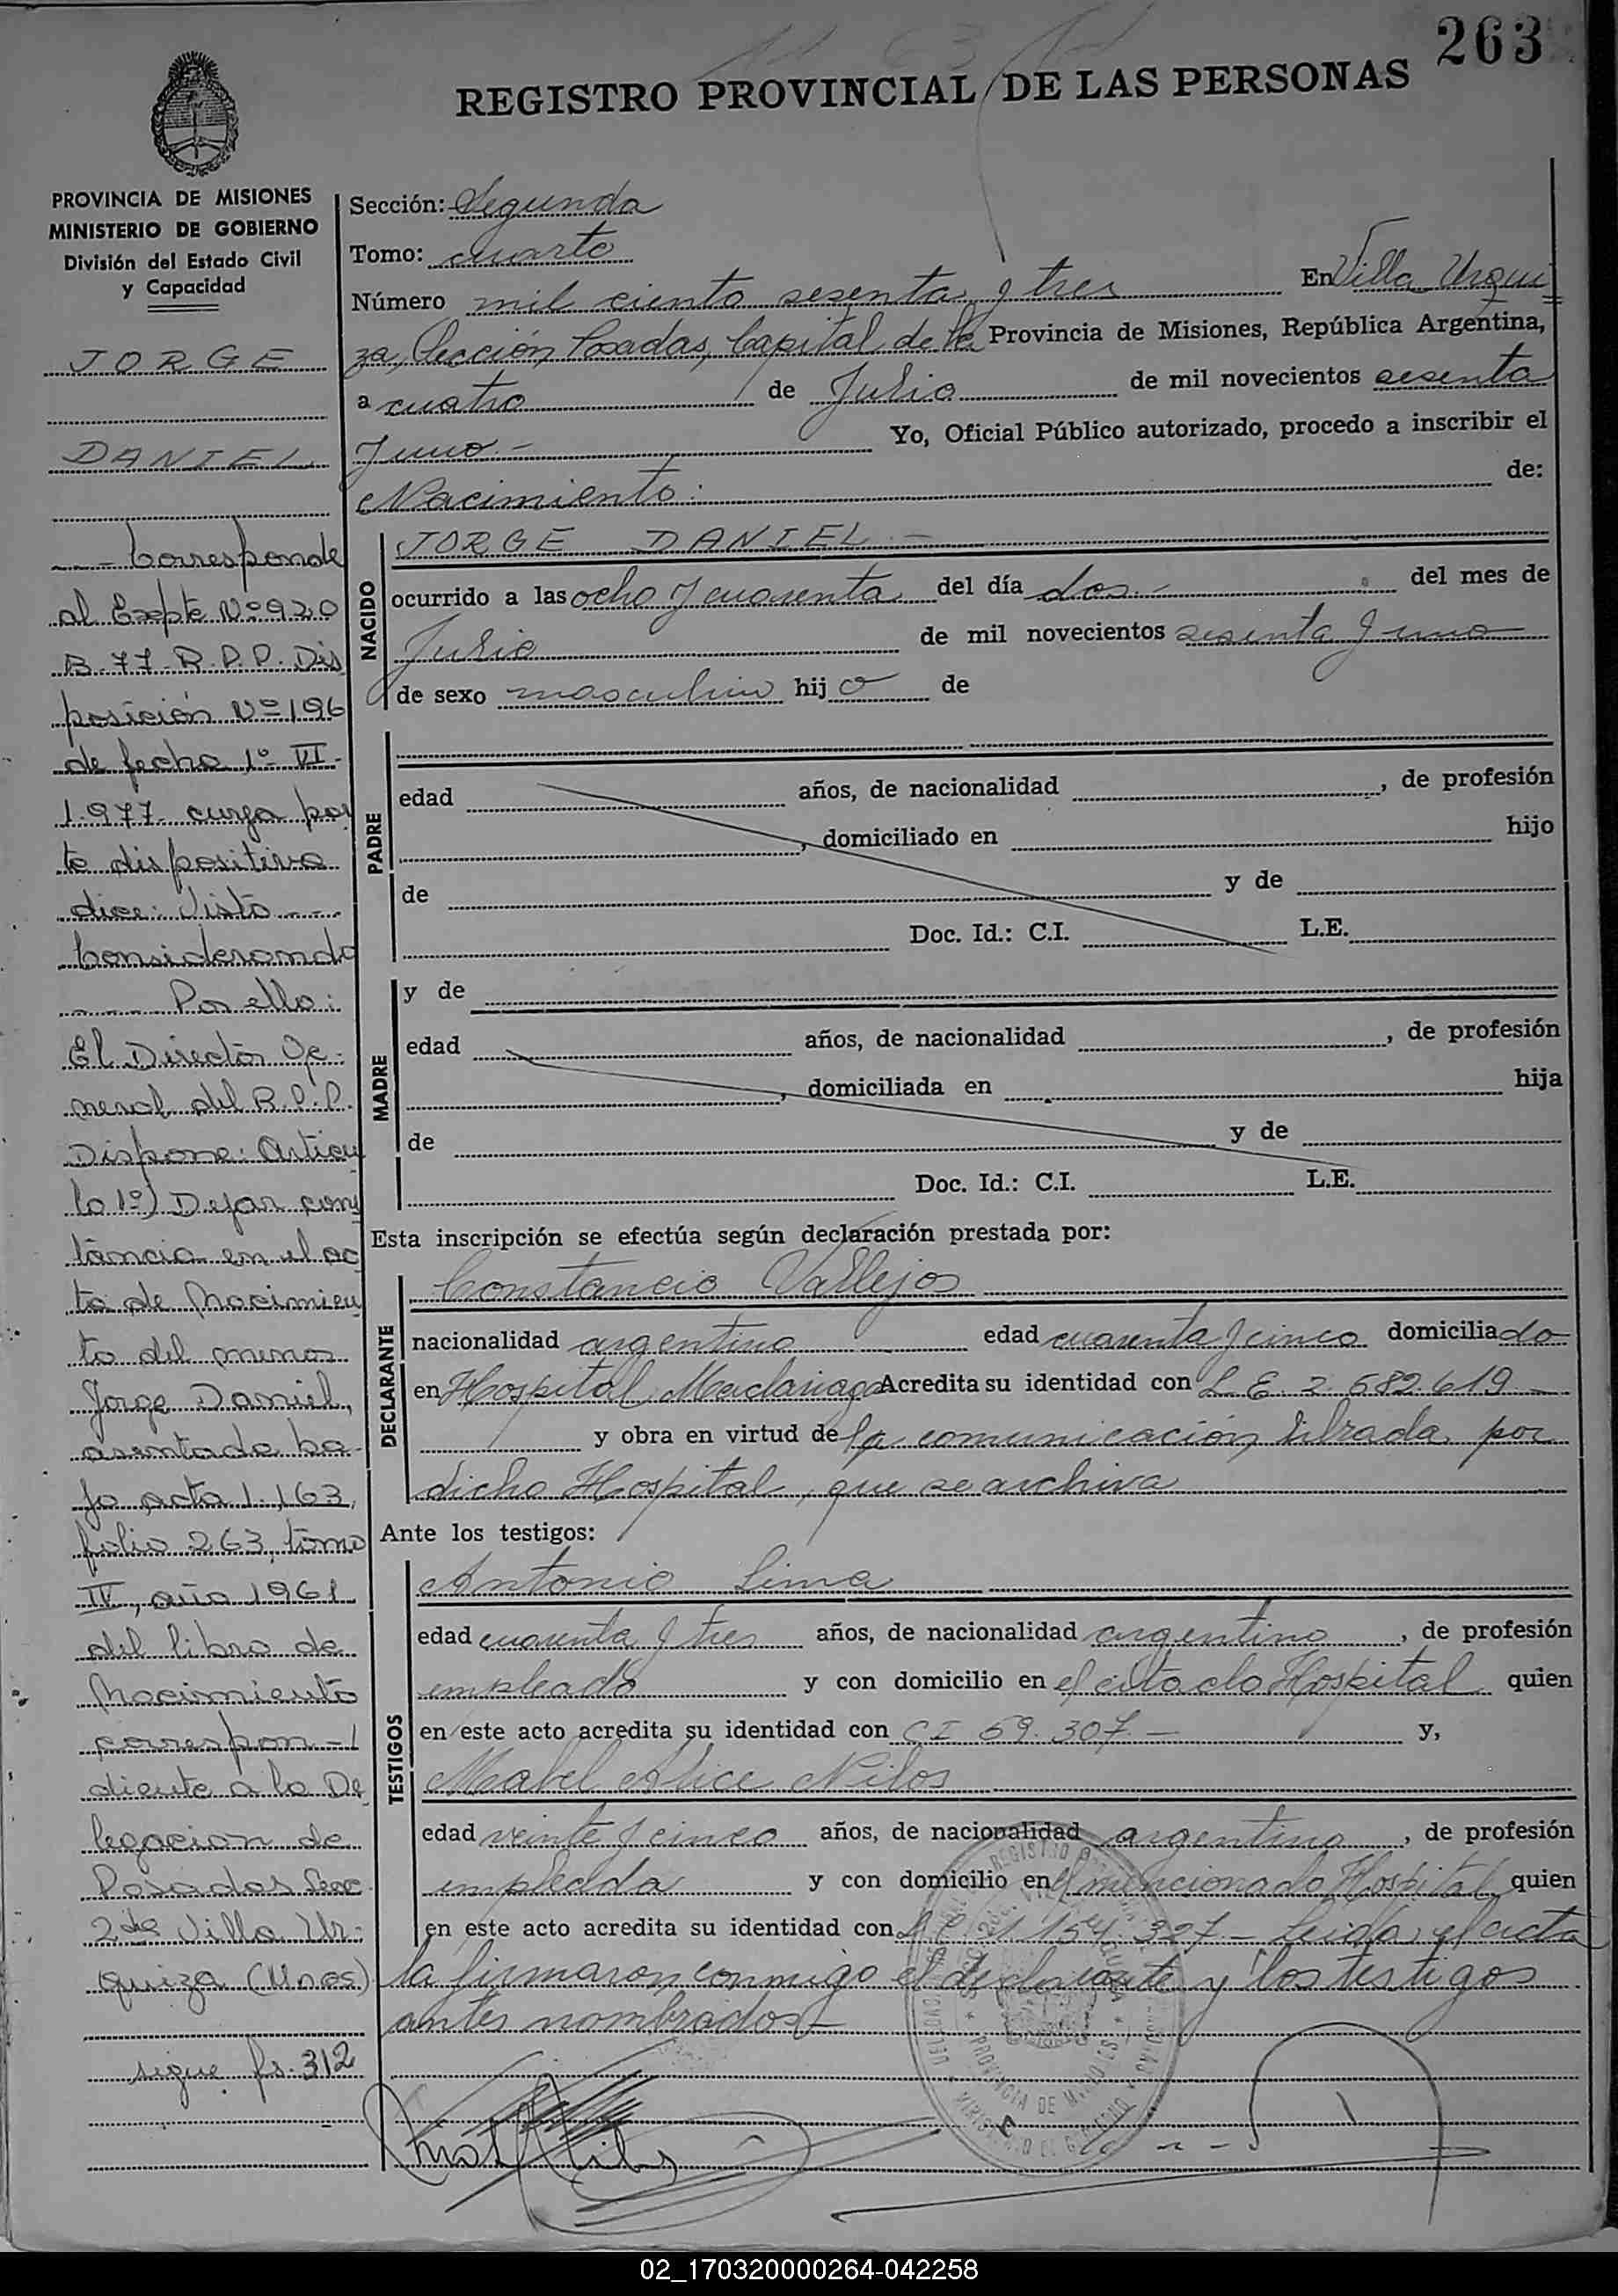 263
REGISTRO PROVINCIAL DE LAS PERSONAS
PROVINCIA DE MISIONES
MINISTERIO DE GOBIERNO
División del Estado Civil
y Capacidad
JORGE
DANIEL
--- Corresponde
al Expte Nº 920
B-77-R.P.P. Dis
posición Nº 196
de fecha 1º-VI-
1.977 cuya par
te dispositiva
dice: Visto ---
Considerando
---- Por ello:
El Director Ge-
neral del R.P.P.
Dispone: Artícu
lo 1º) Dejar cons
tancia en el ac
ta de Nacimien
to del menor
Jorge Daniel,
asentada ba-
jo acta 1.163,
folio 263, tomo
IV, año 1961
del libro de
Nacimiento
correspon-
diente a la De
legacion de
Posadas Secc
2da Villa Ur-
quiza (Mnes)
sigue fs. 312
Sección: Segunda
Tomo: cuarto
Número mil ciento sesenta y tres En Villa Urqui
za, Sección Posadas, Capital de la Provincia de Misiones, República Argentina,
a cuatro de Julio de mil novecientos sesenta
y uno.- Yo, Oficial Público autorizado, procedo a inscribir el
Nacimiento: de:
NACIDO
JORGE DANIEL.-
ocurrido a las ocho y cuarenta del día dos.- del mes de
Julio de mil novecientos sesenta y uno
de sexo masculino hijo de
PADRE
edad años, de nacionalidad , de profesión
, domiciliado en hijo
de y de
Doc. Id.: C.I. L.E.
MADRE
y de
edad años, de nacionalidad , de profesión
, domiciliada en hija
de y de
Doc. Id.: C.I. L.E.
Esta inscripción se efectúa según declaración prestada por:
DECLARANTE
Constancio Vallejos
nacionalidad argentino edad cuarenta y cinco domiciliado
en Hospital Madariaga Acredita su identidad con L E. 2.682.619 -
y obra en virtud de la comunicación librada por
dicho Hospital, que se archiva
Ante los testigos:
TESTIGOS
Antonio Lima
edad cuarenta y tres años, de nacionalidad argentino , de profesión
empleado y con domicilio en el citado Hospital quien
en este acto acredita su identidad con CI 59.307.- y,
Mabel Alice Nilos
edad veinte y cinco años, de nacionalidad argentina , de profesión
empleada y con domicilio en el mencionado Hospital quien
en este acto acredita su identidad con 154.327 - Leida el acta
la firmaron conmigo el declarante y los testigos
antes nombrados.-
PROVINCIA DE MISIONES
02_170320000264-042258